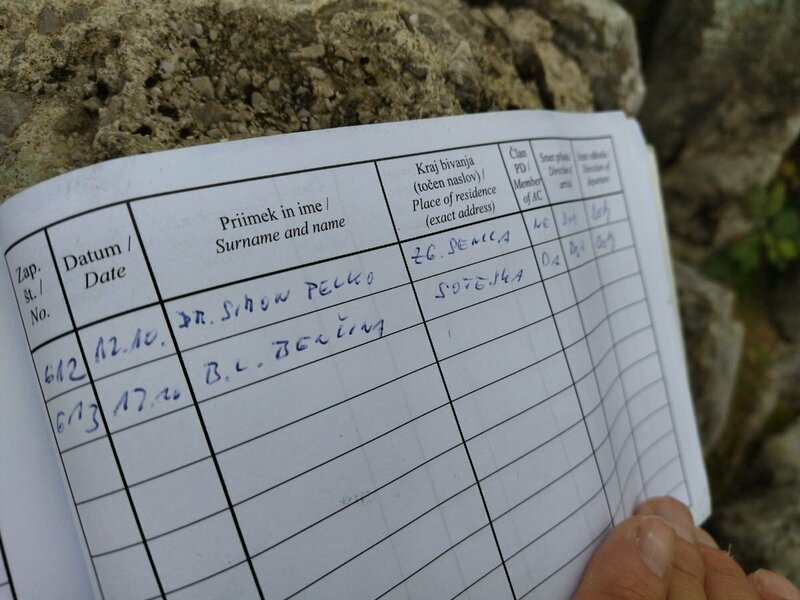 Zap. št. / No.
Datum / Date
Priimek in ime / Surname and name
Kraj bivanja (točen naslov) / Place of residence (exact address)
Član PD / Member of AC
Smer prihoda / Direction of arrival
Smer odhoda / Direction of departure
612 12.10. DR. SIMON PELKO ZG. SENICA NE
613 17.10 B. L. BENČINA SOTESKA DA